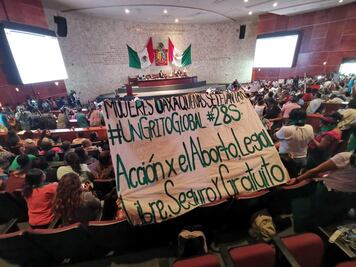 MUJERES OAXAQUEÑAS
#UNGRITOGLOBAL #28S
Acción x el Aborto Legal
Libre, Seguro y Gratuito